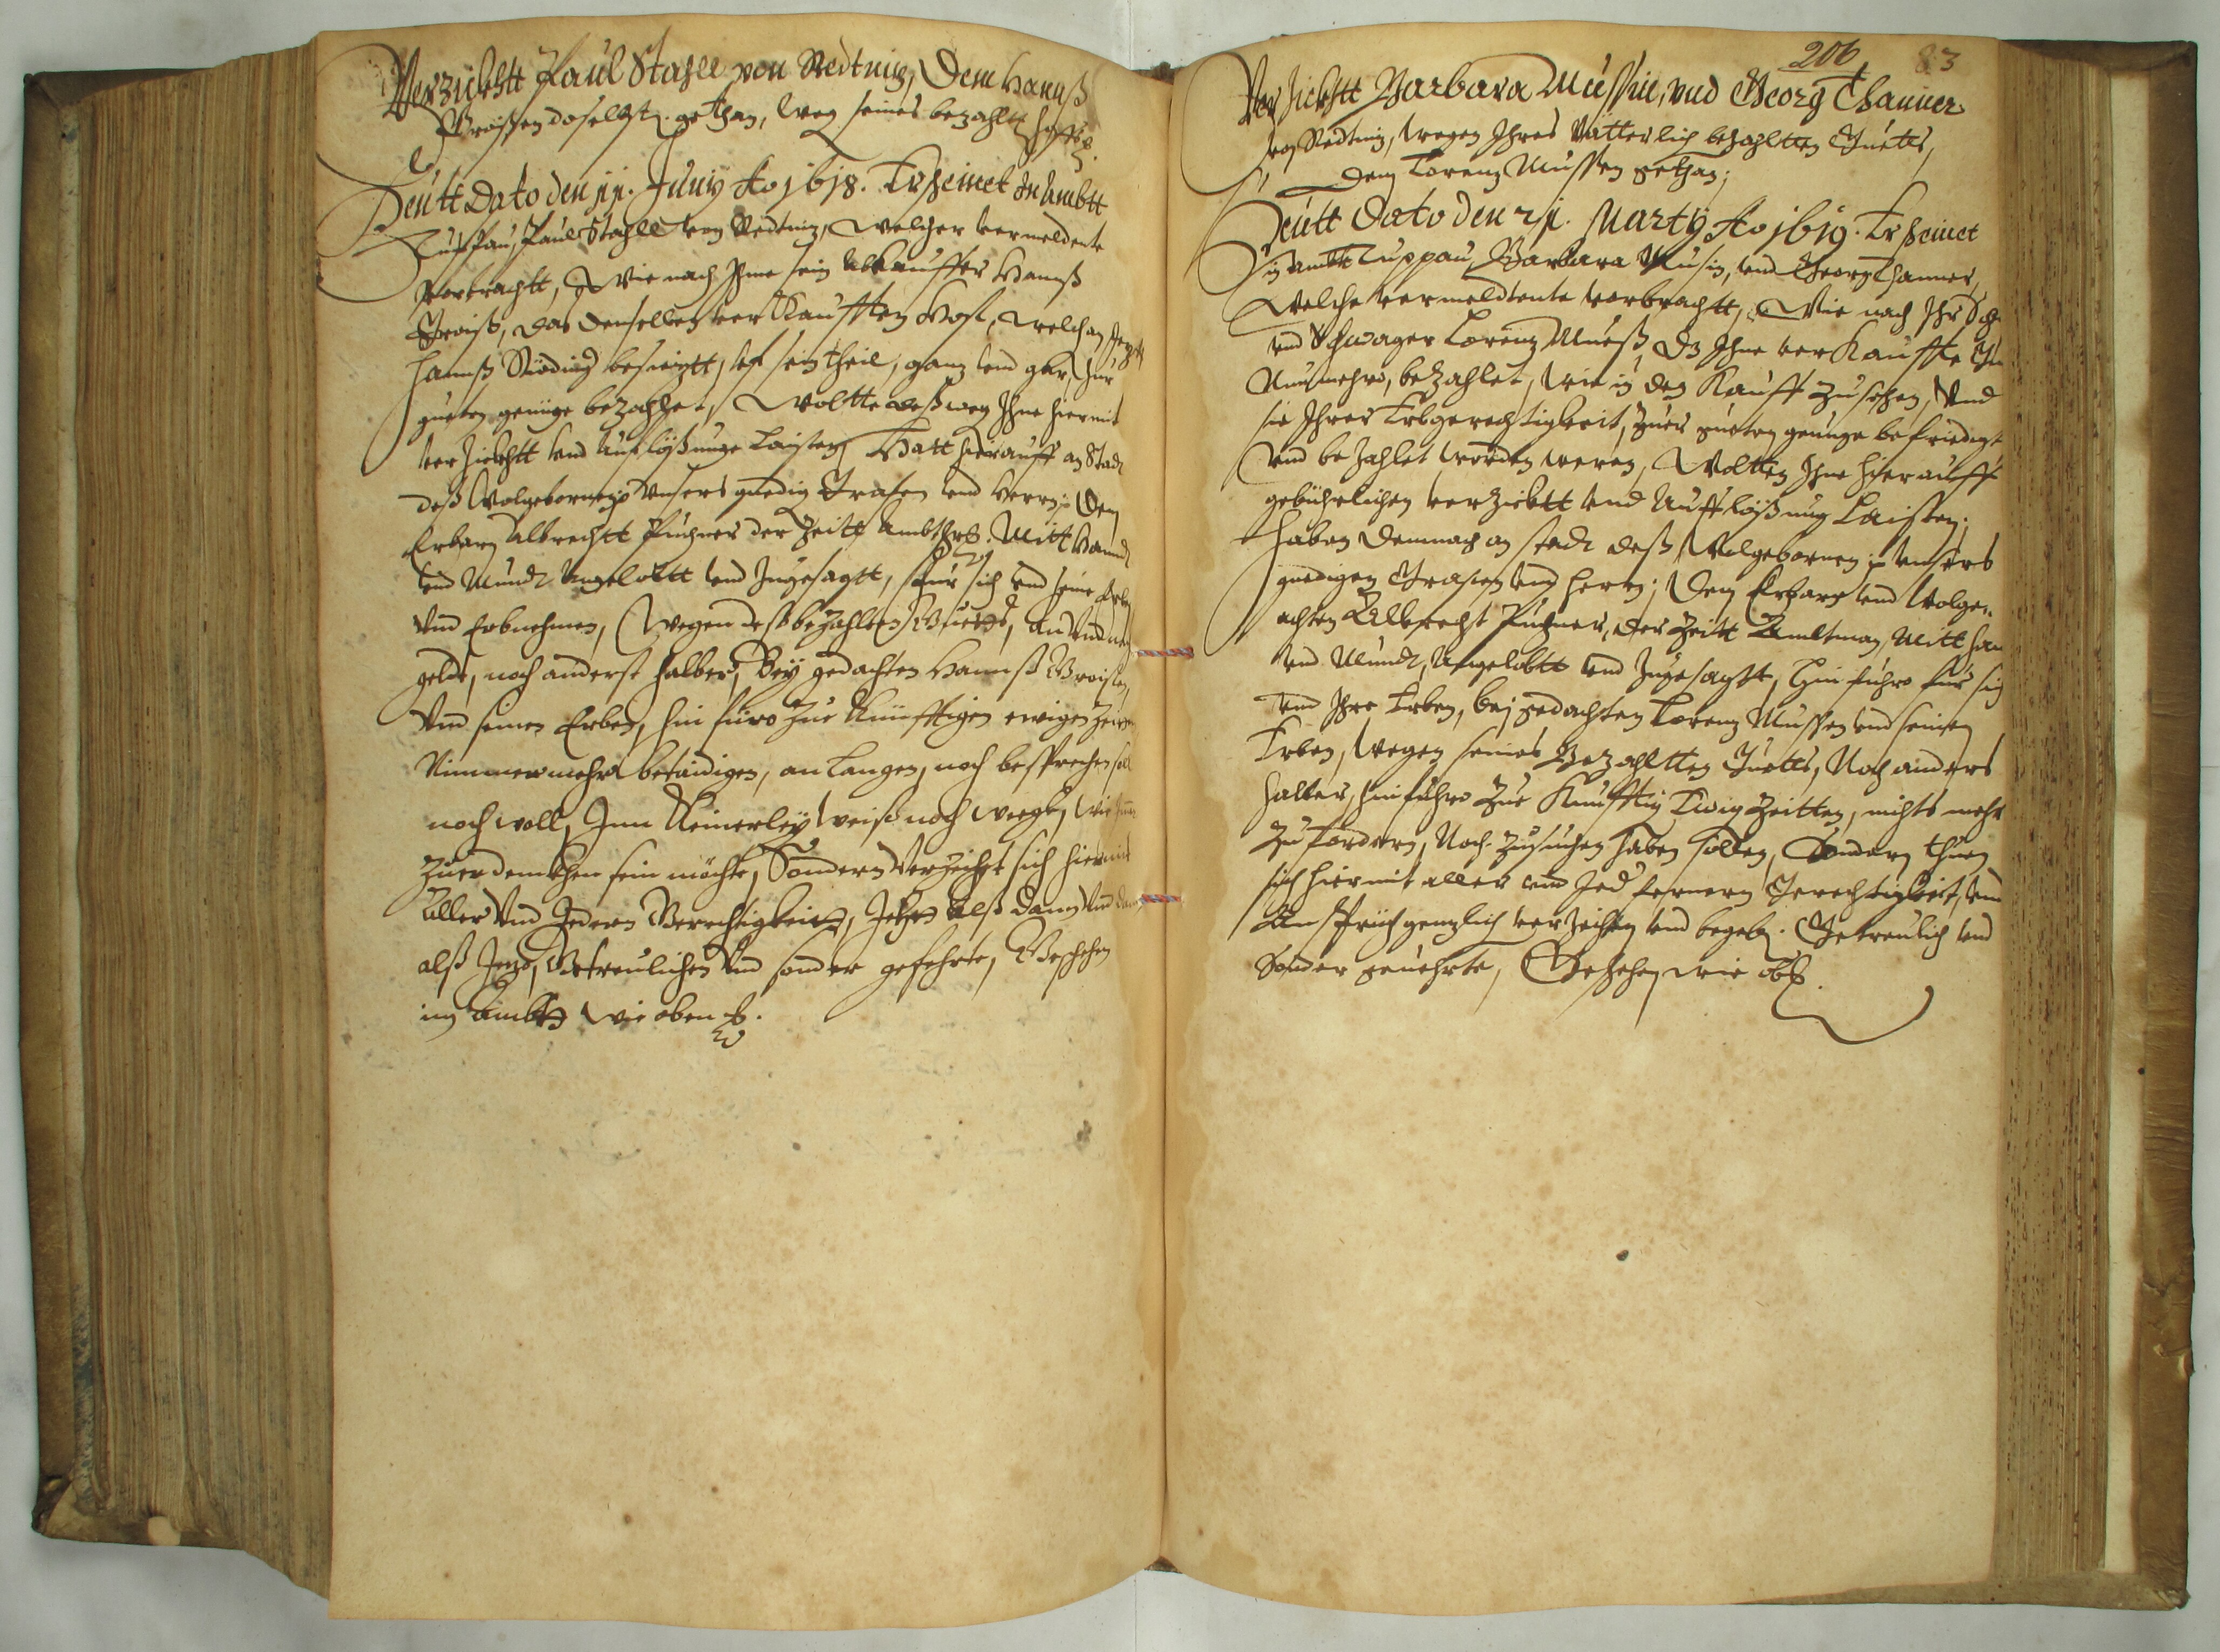 Verzückhtt Paul Stahll von Redtnitz, Dem Hannß
Groißen doselbst gethan, weg seines bezahltt hoffs.
Heutt Dato den 11. Juny Ao 1618. Erscheinet In Ambtt
Luppau, Paul Stahll von Redtnitz, welcher vermeldente
vorbrachtt, Wie nach Ihme sein Abkauffer Hannß
Groiß, das denselben verkaufften Hoff, welchen
Hannß besiczt, uf sein theil, ganz und gar, Zur
gueten genüge bezahlet, Woltte deßweg Ihne hiermit
verzichtt und Auflößunge Laisten, Hatt hierauff an Stadt
deß Wolgebornen p unsers gnedig Grafen und Herrn p Dem
Erbarn Albrechtt Puchner der Zeitt Ambtß. Mitt Handt
und Mundt Angelobtt und Zugesagtt, für sich und seine Erb
Und Erbnehmen, Wegen deß bezahlten Guets,
geldt, noch anderst halber, Bey gedachten Hannß Groißen,
Und seinen Erben, hin füro Zue Künfftigen ewigen Zeiten
Nimmermehr beleidigen, anlangen, noch besprechen soll
noch woll, Inn Keinerley weiß noch weege, wie
Zuerdenkhen sein möchte, Sondern Verzeiht sich hiermit
Aller Und Jedern Gerechtigkeit, Jetzo Alß dann Und dann
alß Jezo, Getreulichen Und sonder gefehrte, Geschehen
im Ambtt wie oben.
206 83
Verzichtt Barbara Mussin, und Georg Thanner
von Redtnitz, wegen Ihres Vätterlich bezahltten Guetts,
dem Lorenz Mussen gethan;
Heutt Dato den 21. Marty Ao 1619. Erscheinet
in Ambtt Luppau, Barbara Musin, und Georg Thanner,
Welche vermeldente vorbrachtt, Wie nach Ihr
und Schwager Lorenz Mueß, Dz Ihne verkauffte
Nunmehro, bezahlet, wie in den Kauff zusehen, Und
sie Ihrer Erbgerechtigkeit, Zuer gueten genüge befriedigt
und bezahlet worden weren, Woltten Ihne hierauff
gebührlichen verzichtt und Aufflößung Laisten;
Haben demnach an stadt deß Wolgebornen p unsers
gnedigen Grafen und Herrn; Dem Erbarn und Wolge„
achten Albrecht Puchner, der Zeitt Ambtman, Mitt han
und Mundt, Angelobtt und Zugesagtt, Hinführo für sich
und Ihre Erben, bej gedachten Lorenz Mussen und seinen
Erben, wegen seines Bezahltten Guetts, Noch anders
halber, hinführo Zue Künfftig Ewig Zeitten, nichts mehr
zu fordern, Noch zusuchen haben sollen, Sondern thuen
sich hiermit aller und Jed fernern Gerechtigkeit, und
Ansprüch genzlich verzeihen und begeben. Getreulich und
sonder geuehrte, Geschehen wie obst.